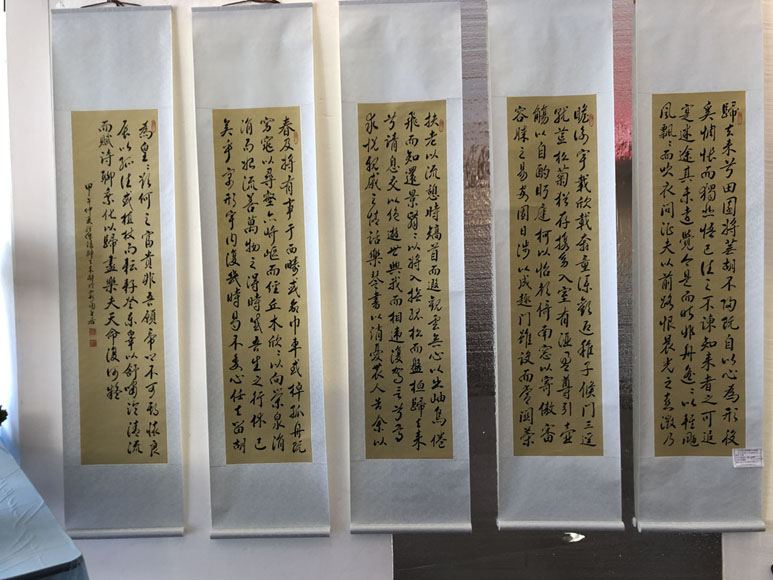 歸去来兮田園將蕪胡不歸既自以心為形役
奚惆悵而獨悲悟已往之不諫知来者之可追
寔迷途其未遠覺今是而昨非舟遙〻以輕颺
風飄〻而吹衣問征夫以前路恨晨光之熹微乃
瞻衡宇載欣載奔童僕歡迎稚子候門三逕
就荒松菊猶存攜幼入室有酒盈尊引壺
觴以自酌眄庭柯以怡顏倚南窗以寄傲審
容膝之易安園日涉以成趣門雖設而常關策
扶老以流憩時矯首而遐觀雲無心以出岫鳥倦
飛而知還景翳〻以將入撫孤松而盤桓歸去来
兮請息交以絕遊世與我而相違復駕言兮焉
求悅親戚之情話樂琴書以消憂農人告余以
春及將有事于西疇或命巾車或棹孤舟既
窈窕以尋壑亦崎嶇而經丘木欣〻以向榮泉涓
涓而始流善萬物之得時感吾生之行休已
矣乎寓形宇內復幾時曷不委心任去留胡
為皇〻欲何之富貴非吾願帝鄉不可期懷良
辰以孤往或植杖而耘耔登東皋以舒嘯臨清流
而賦詩聊乘化以歸盡樂夫天命復何疑
甲午仲夏